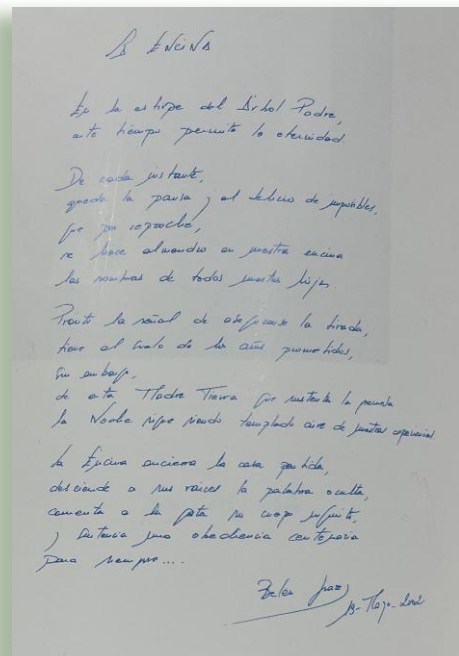 La ENCINA
En la estirpe del Árbol Padre,
este tiempo permite la eternidad.
De cada instante,
queda la pausa y el delirio de imposibles,
que por reproche,
se hace almendro en nuestra encina
los nombres de todos nuestros hijos.
Pronto la señal de la tirada,
tiene el vuelo de los años prometidos,
sin embargo,
de esta Madre Tierra que sustenta la
la Noche sigue siendo templado aire de nuestras
La Encina encierra la casa perdida,
desciende a sus raíces la palabra oculta,
comenta a la su cuerpo infinito,
y sentencia una obediencia centenaria
para siempre....
Belén
13-Mayo-2002